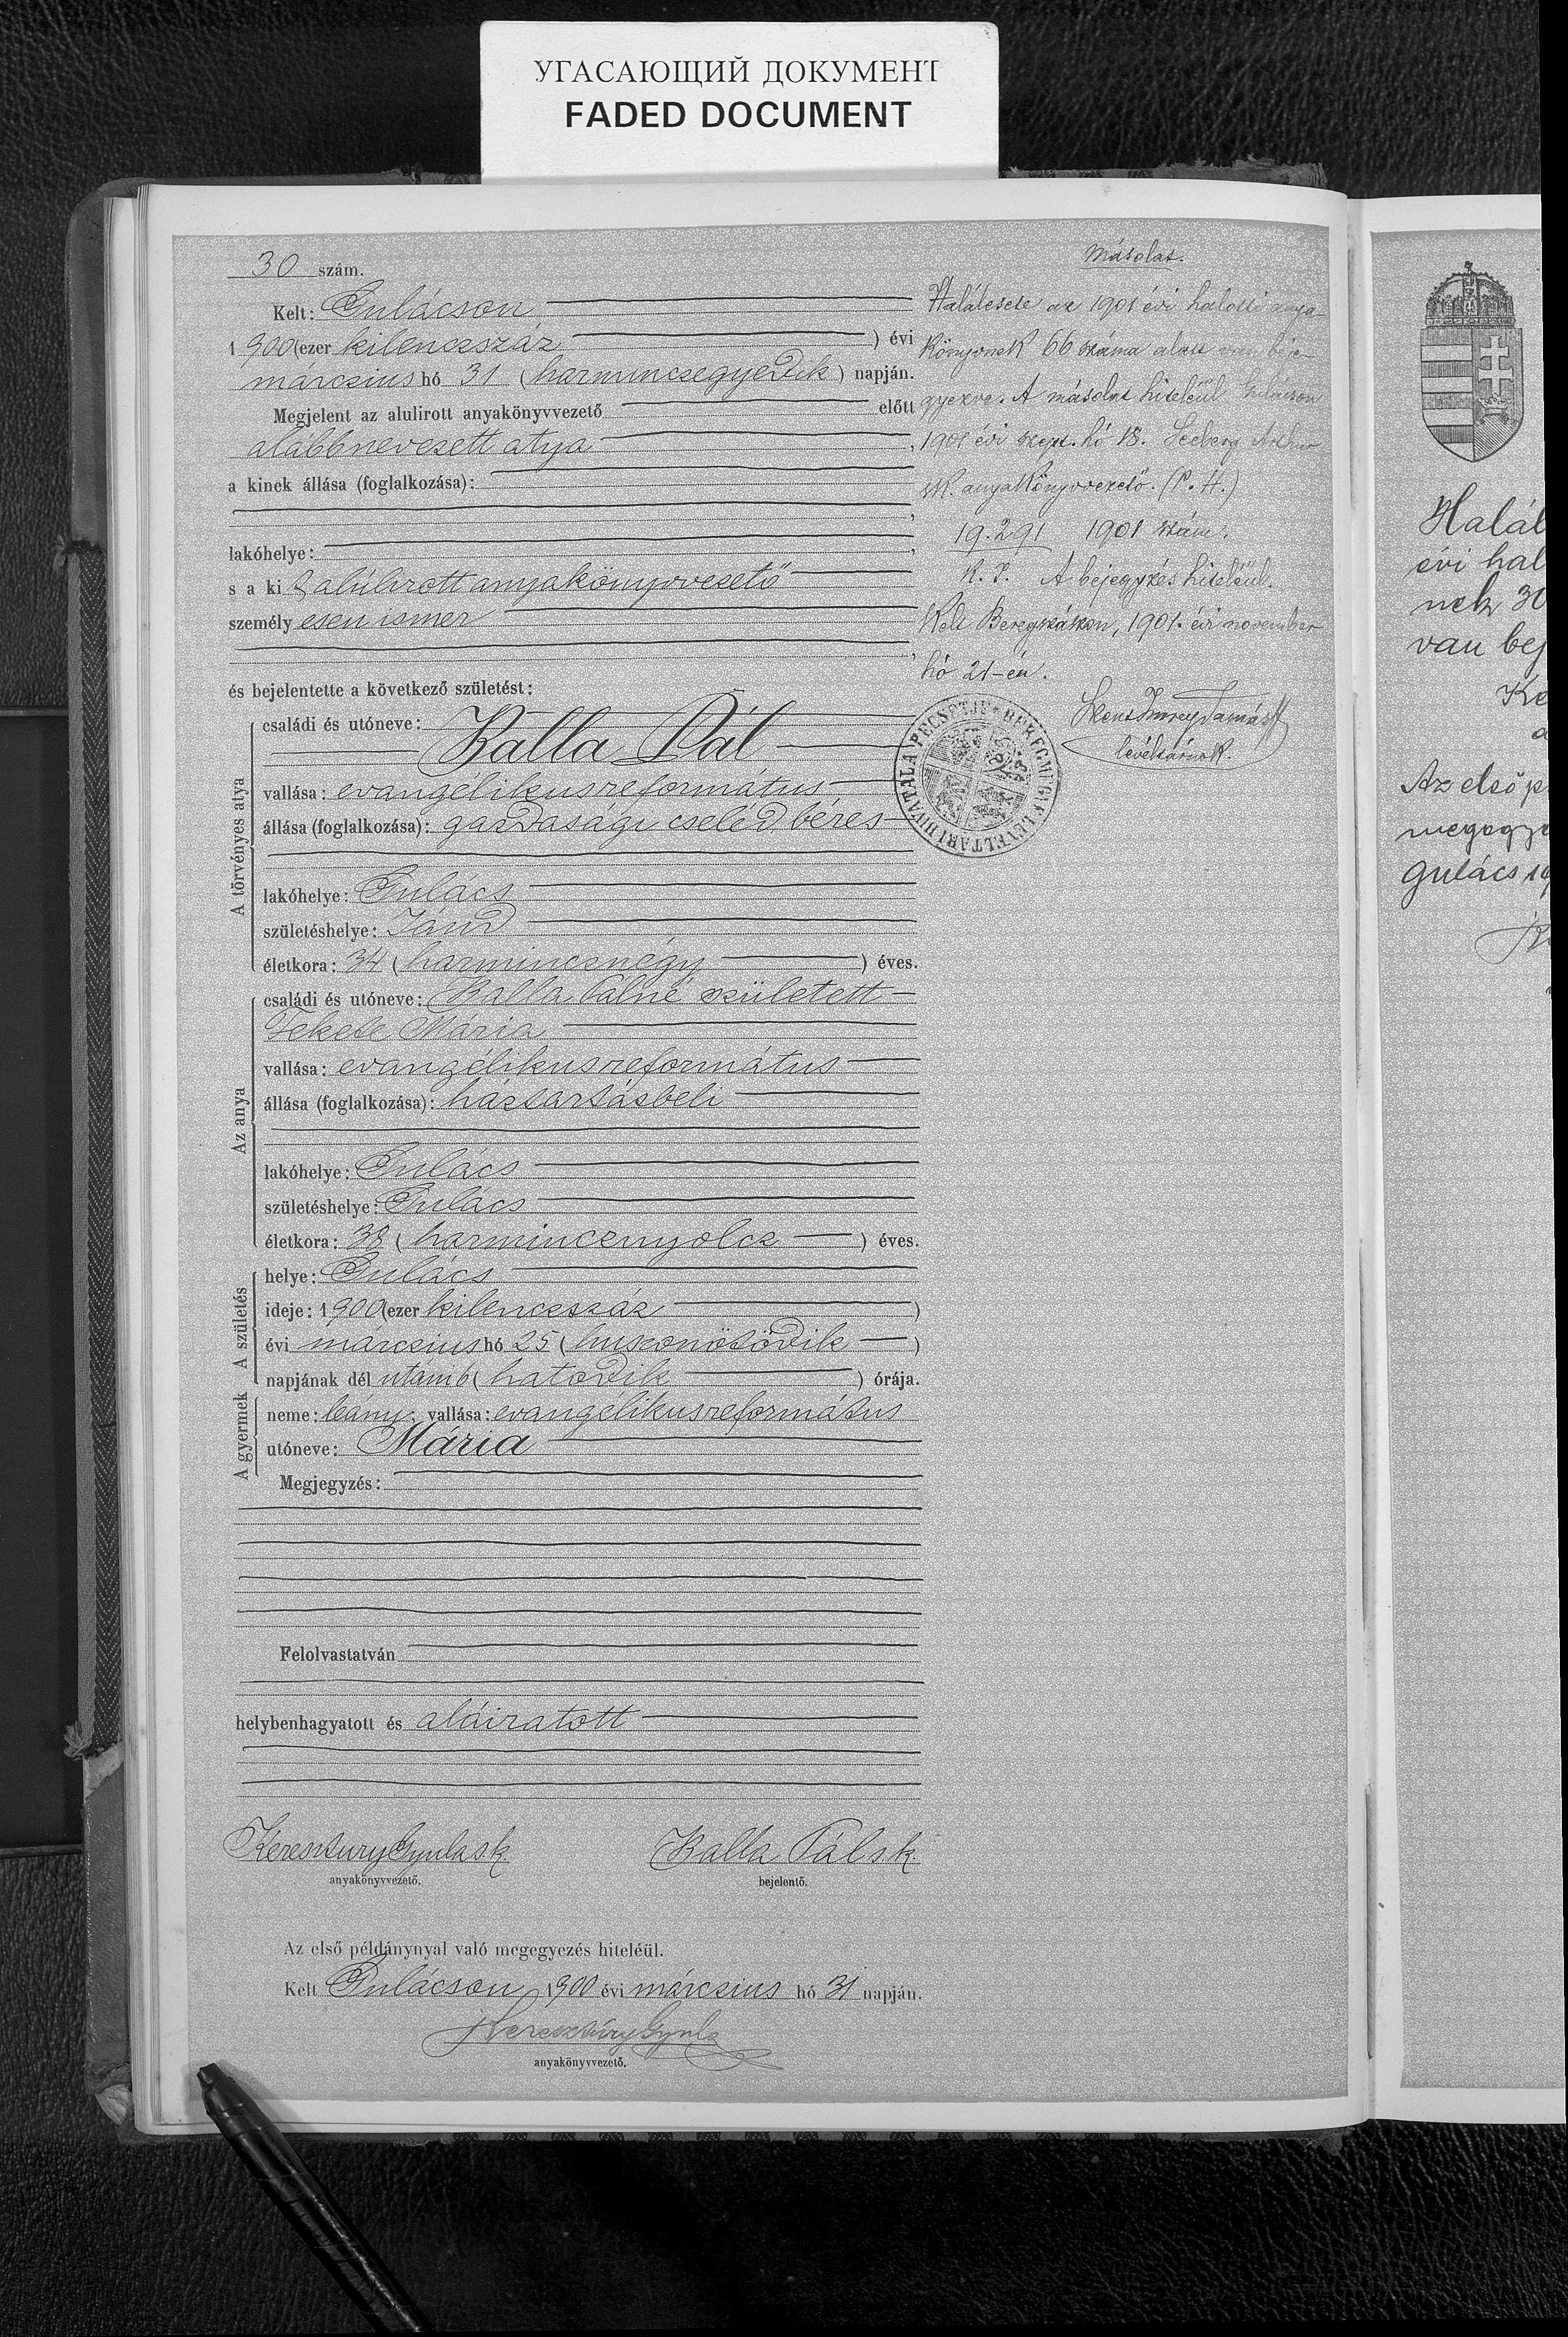 УГАСАЮЩИЙ ДОКУМЕНТ
FADED DOCUMENT
30 szám.
Kelt: Gulácson
1900 (ezer kilenczszáz) évi
márczius hó 31 (harminczegyedik) napján.
Megjelent az alulirott anyakönyvvezető előtt
alábbnevezett atya,
a kinek állása (foglalkozása):
lakóhelye:
s a kit alúlirott anyakönyvvezető
személyesen ismer
és bejelentette a következő születést:
A törvényes atya
családi és utóneve:
Balla Pál
vallása: evangélikusreformátus
állása (foglalkozása): gazdasági cseléd, béres
lakóhelye: Gulács
születéshelye: Jánd
életkora: 34 (harmincznégy) éves.
Az anya
családi és utóneve: Balla Pálné született
Fekete Mária
vallása: evangélikusreformátus
állása (foglalkozása): háztartásbeli
lakóhelye: Gulács
születéshelye: Gulács
életkora: 38 (harmincznyolcz) éves.
A születés
helye: Gulács
ideje: 1900 (ezer kilenczszáz)
évi márczius hó 25 (huszonötödik)
napjának dél utáni 6 (hatodik) órája.
A gyermek
neme: leány; vallása: evangélikusreformátus
utóneve: Mária
Megjegyzés:
Felolvastatván
helybenhagyatott és aláiratott
Keresztury Gyula sk. Balla Pál s.k.
anyakönyvvezető. bejelentő.
Az első példánynyal való megegyezés hiteléül.
Kelt Gulácson 1900 évi márczius hó 31 napján.
Keresztúry Gyula
anyakönyvvezető.
Másolat.
Halálesete az 1901 évi halotti anya-
könyvnek 66 száma alatt van beje-
gyezve. A másolat hiteléül Gulácson
1901 évi szept. hó 18. Arthur
sk. anyakönyvvezető. (P. H.)
19.291 1901 szám.
K. P. A bejegyzés hiteléül.
Kelt Beregszászon, 1901. évi november
hó 21-én.
Tamás
levéltárnok.
BEREGMEGYE LEVÉLTÁRI HIVATALA PECSÉTJE
Halál
évi hal
nek 30
van bej
Ke
Az első p
megegye
Gulács 19